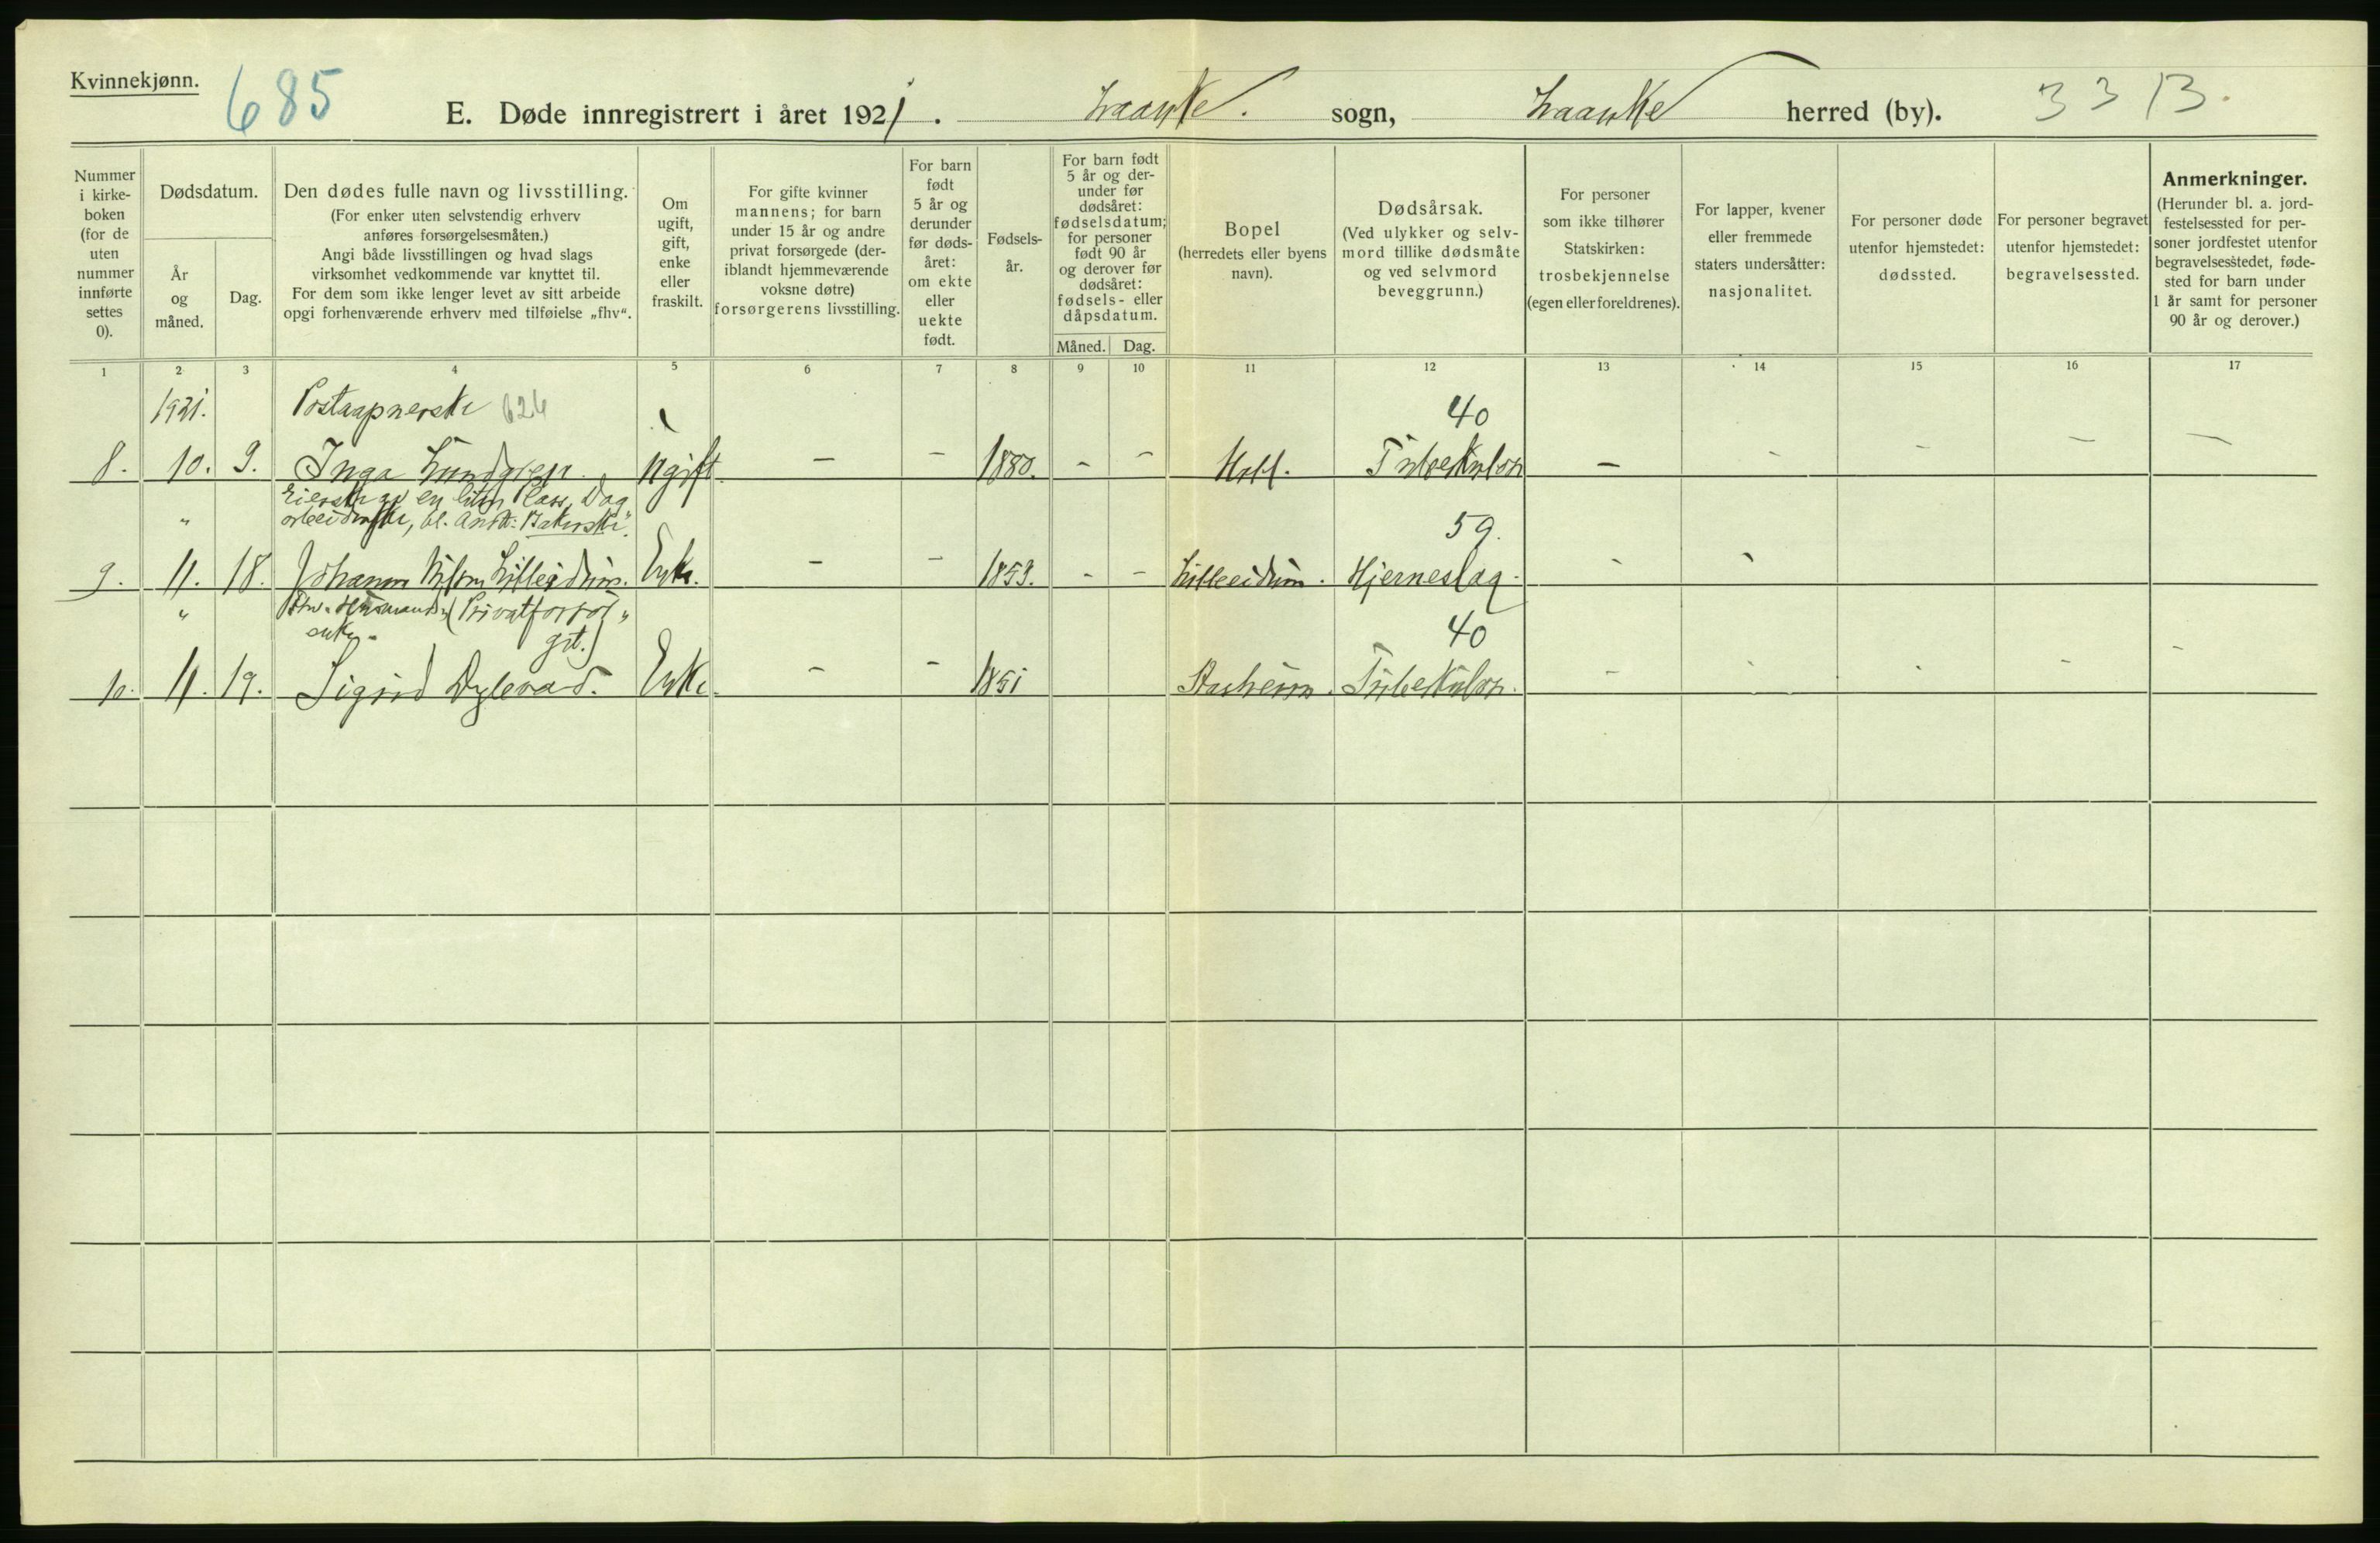 Kvinnekjønn.
685
E. Døde innregistrert i året 1921. Laanke. sogn, Laanke herred (by). 33 13.
Nummer i kirkeboken (for de uten nummer innførte settes 0).
Dødsdatum.
År og måned.
Dag.
Den dødes fulle navn og livsstilling.
(For enker uten selvstendig erhverv
anføres forsørgelsesmåten.)
Angi både livsstillingen og hvad slags
virksomhet vedkommende var knyttet til.
For dem som ikke lenger levet av sitt arbeide
opgi forhenværende erhverv med tilføielse „fhv“.
Om
ugift,
gift,
enke
eller
fraskilt.
For gifte kvinner
mannens; for barn
under 15 år og andre
privat forsørgede (der-
iblandt hjemmeværende
voksne døtre)
forsørgerens livsstilling.
For barn
født
5 år og
derunder
før døds-
året:
om ekte
eller
uekte
født.
Fødsels-
år.
For barn født
5 år og der-
under før
dødsåret:
fødselsdatum;
for personer
født 90 år
og derover før
dødsåret:
fødsels- eller
dåpsdatum.
Måned. Dag.
Bopel
(herredets eller byens
navn).
Dødsårsak.
(Ved ulykker og selv-
mord tillike dødsmåte
og ved selvmord
beveggrunn.)
For personer
som ikke tilhører
Statskirken:
trosbekjennelse
(egen eller foreldrenes).
For lapper, kvener
eller fremmede
staters undersåtter:
nasjonalitet.
For personer døde
utenfor hjemstedet:
dødssted.
For personer begravet
utenfor hjemstedet:
begravelsessted.
Anmerkninger.
(Herunder bl. a. jord-
festelsessted for per-
soner jordfestet utenfor
begravelsesstedet, føde-
sted for barn under
1 år samt for personer
90 år og derover.)
1 2 3 4 5 6 7 8 9 10 11 12 13 14 15 16 17
1921. Postaapnerske 624 40
8. 10. 9. Inga Lundgren. Ugift — — 1880. - - Hell. Tuberkulose — - - — —
Eierske av en liten Plass, Dag
" arbeiderske, bl. 59.
9. 11. 18. Johanna Lilleidum. Enke. — — 1853. - - Lilleeidum. Hjerneslag. - -
" Fhv. Husmands (Privatforsør„
enke. get.) 40
10. 11. 19. Sigrid Dylevad. Enke. — — 1851 Tuberkulose. - - - - -